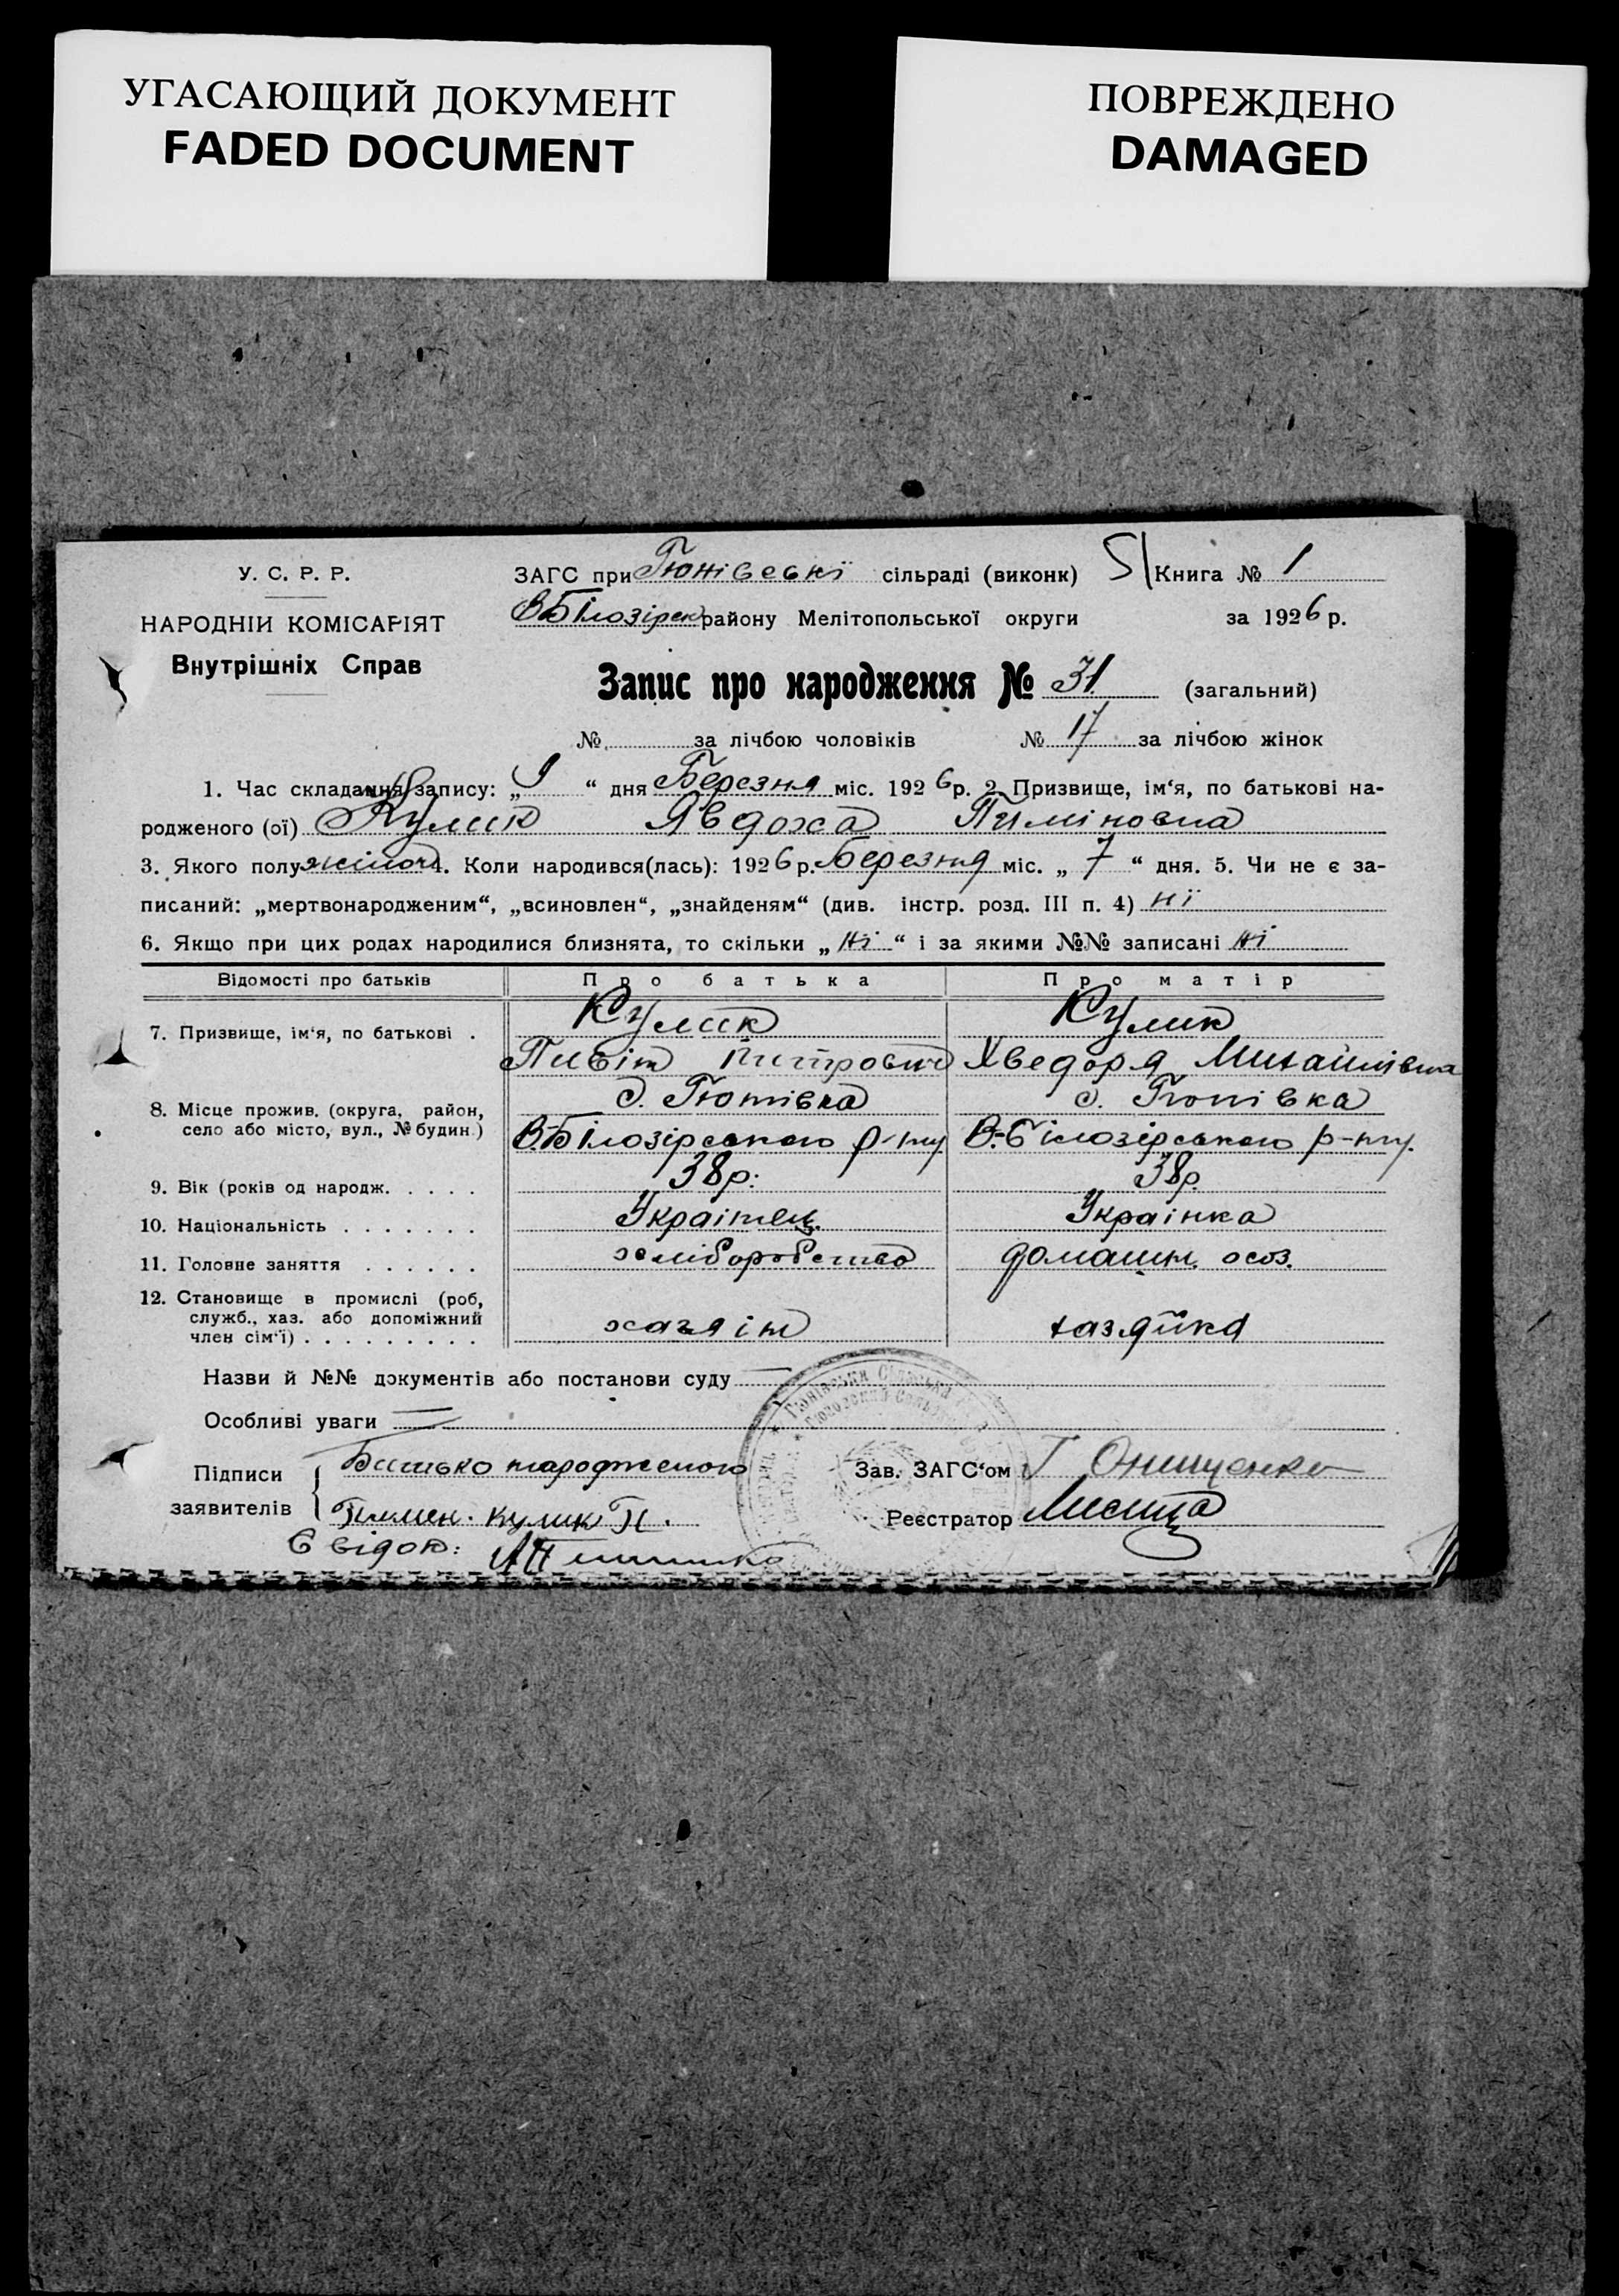 УГАСАЮЩИЙ ДОКУМЕНТ
FADED DOCUMENT
ПОВРЕЖДЕНО
DAMAGED
У. С. Р. Р.
НАРОДНІЙ КОМІСАРІЯТ
Внутрішніх Справ
ЗАГС при Гюнівські сільраді (виконк) 51 Книга № 1
В-Білозірск району Мелітопольської округи за 1926 р.
Запис про народження № 31 (загальний)
№ за лічбою чоловіків № 17 за лічбою жінок
1. Час складання запису: „9“ дня Березня міс. 1926 р. 2. Призвище, ім‘я, по батькові на-
родженого (ої) Кулик Явдоха Пиміновна
3. Якого полу жіноч 4. Коли народився(лась): 1926 р. Березня міс. „7“ дня. 5. Чи не є за-
писаний: „мертвонародженим“, „всиновлен“, „знайденям“ (див. інстр. розд. III п. 4) ні
6. Якщо при цих родах народилися близнята, то скільки „ні“ і за якими №№ записані ні
Відомості про батьків Про батька Про матір
7. Призвище, ім‘я, по батькові . Кулик Кулик
Питрович Хведора Михайлівна
8. Місце прожив. (округа, район, с. Гюнівка с. Гюнівка
село або місто, вул., № будин.) В-Білозірського р-ну В-Білозірського р-ну.
9. Вік (років од народж. . . . . 38 р. 38 р.
10. Національність . . . . . . . Українец Українка
11. Головне заняття . . . . . . хліборобство домашн.
12. Становище в промислі (роб,
служб., хаз. або допоміжний
член сім‘ї) . . . . . . . . . хазяін хазяйка
Назви й №№ документів або постанови суду —
Особливі уваги —
Підписи
заявителів
Батько народженого
Пимен. Кулик П.
Свідок:
Зав. ЗАГС‘ом Г Онищенко
Реєстратор Лисица